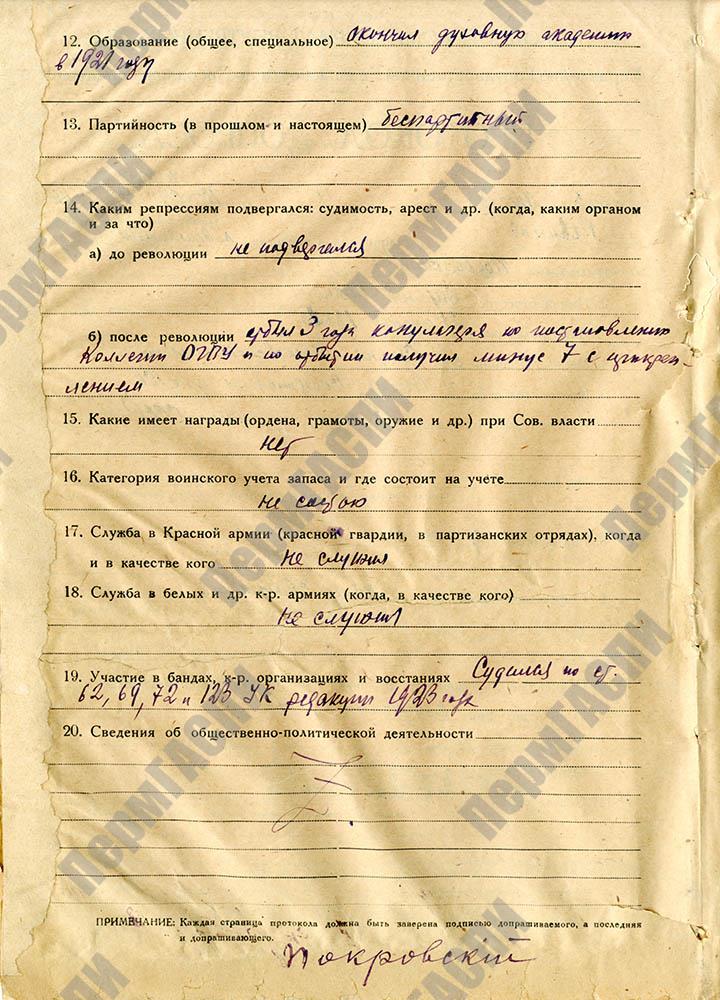 12. Образование (общее, специальное) окончил духовную академию
в 1921 году
13. Партийность (в прошлом и настоящем) беспартийный
14. Каким репрессиям подвергался: судимость, арест и др. (когда, каким органом
и за что)
а) до революции не подвергался
б) после революции отбыл 3 года концлагеря по постановлению
Коллегии ОГПУ и по отбытии получил минус 7 с прикреп-
лением
15. Какие имеет награды (ордена, грамоты, оружие и др.) при Сов. власти
нет
16. Категория воинского учета запаса и где состоит на учете
не состою
17. Служба в Красной армии (красной гвардии, в партизанских отрядах), когда
и в качестве кого не служил
18. Служба в белых и др. к-р. армиях (когда, в качестве кого)
не служил
19. Участие в бандах, к-р. организациях и восстаниях Судился по ст.
62, 69, 72 и 123 УК редакции 1923 года
20. Сведения об общественно-политической деятельности
ПРИМЕЧАНИЕ: Каждая страница протокола должна быть заверена подписью допрашиваемого, а последняя
и допрашивающего.
Покровскій
ПермГАСПИ